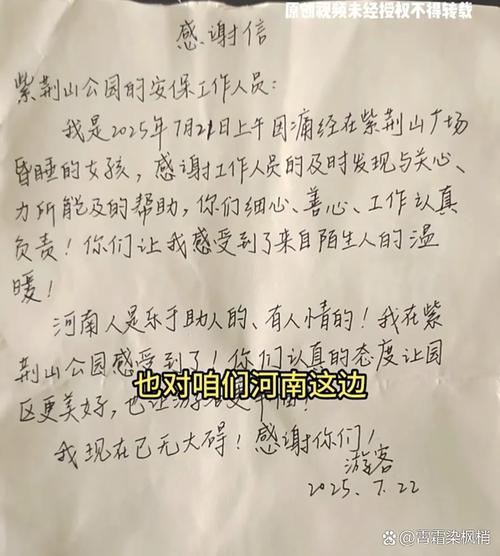 原创视频未经授权不得转载
感谢信
紫荆山公园的安保工作人员:
我是2025年7月21日上午因痛经在紫荆山广场
昏睡的女孩,感谢工作人员的及时发现与关心、
力所能及的帮助,你们细心、善心、工作认真
负责!你们让我感受到了来自陌生人的温
暖!
河南人是乐于助人的、有人情的!我在紫
荆山公园感受到了!你们认真的态度让园
也对咱们河南这边
区更美好,也让
我现在已无大碍!感谢你们!
游客
2025.7.22
百家号/霄霜染枫梢